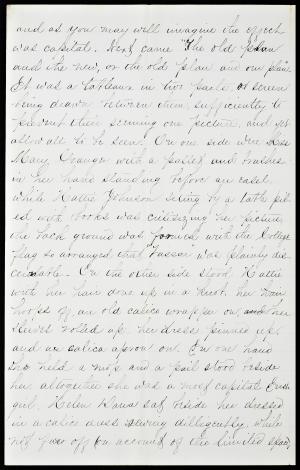 and as you may well imagine the effect
was capital. Next came "The old plan
and the new, or the old plan and our plan".
It was a tableaux in two parts. a screen
being drawn between them, sufficiently to
prevent their seeming one picture, and yet
allow all to be seen. On one side were Miss
Mary Granger with a pallet and brushes
in her hand standing before an easel.
While Hattie Johnson sitting by a table pil-
ed with books was criticizing her picture,
the back ground was formed with the College
flag so arranged that Vassar was plainly dis-
cernable. On the other side stood Hattie
with her hair done up in a knot. her
hoops off, an old calico wrapper on and her
sleeves roled up. her dress pinned up
and an calico apron on. In one hand
she held a mop and a pail stood beside
her altogether she was a most capital
girl. Helen sat beside her dressed
in a calico dress sewing dilligently, while
not far off on account of the limited space